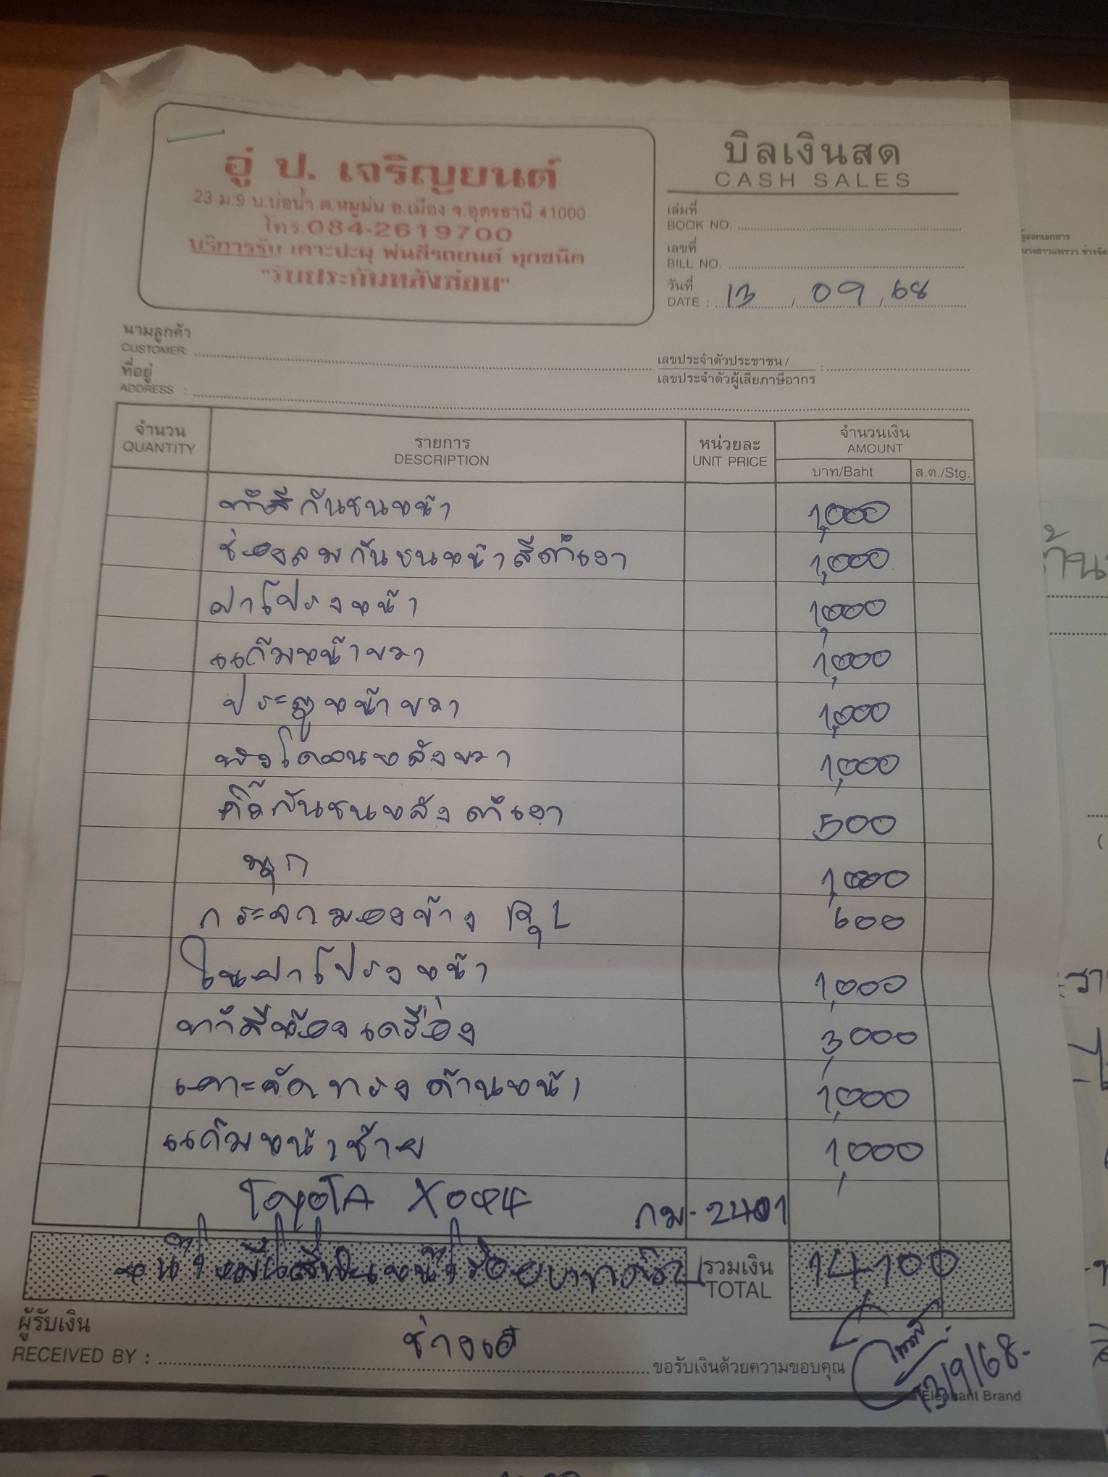 อู่ ป. เจริญยนต์
23 ม.9 บ.บ่อน้ำ ต.หมูม่น อ.เมือง จ.อุดรธานี 41000
โทร.084-2619700
บริการรับ เคาะปะผุ พ่นสีรถยนต์ ทุกชนิด
"รับประกันหลังซ่อม"
บิลเงินสด
CASH SALES
เล่มที่
BOOK NO.
เลขที่
BILL NO.
วันที่
DATE : 13 / 09 / 68
นามลูกค้า
CUSTOMER:
ที่อยู่
ADDRESS :
เลขประจำตัวประชาชน /
เลขประจำตัวผู้เสียภาษีอากร :
จำนวน รายการ หน่วยละ จำนวนเงิน
QUANTITY DESCRIPTION UNIT PRICE AMOUNT
บาท/Baht ส.ต./Stg.
ทำสีกันชนหน้า 1,000
ช่องลมกันชนหน้าสีดำเงา 1,000
ฝาโปรงหน้า 1,000
แก้มหน้าขวา 1,000
ประตูหน้าขวา 1,000
บังโคลนหลังขวา 1,000
คิ้วกันชนหลังดำเงา 500
1,000
กระจกมองข้าง R,L 600
ในฝาโปรงหน้า 1,000
ทำสีห้องเครื่อง 3,000
เคาะดัดทรงด้านหน้า 1,000
แก้มหน้าซ้าย 1,000
TOYOTA กม-2401
หนึ่งหมื่นสี่พันหนึ่งร้อยบาทถ้วน รวมเงิน 14,100
TOTAL
ผู้รับเงิน
RECEIVED BY : ขอรับเงินด้วยความขอบคุณ
13/9/68
Elephant Brand